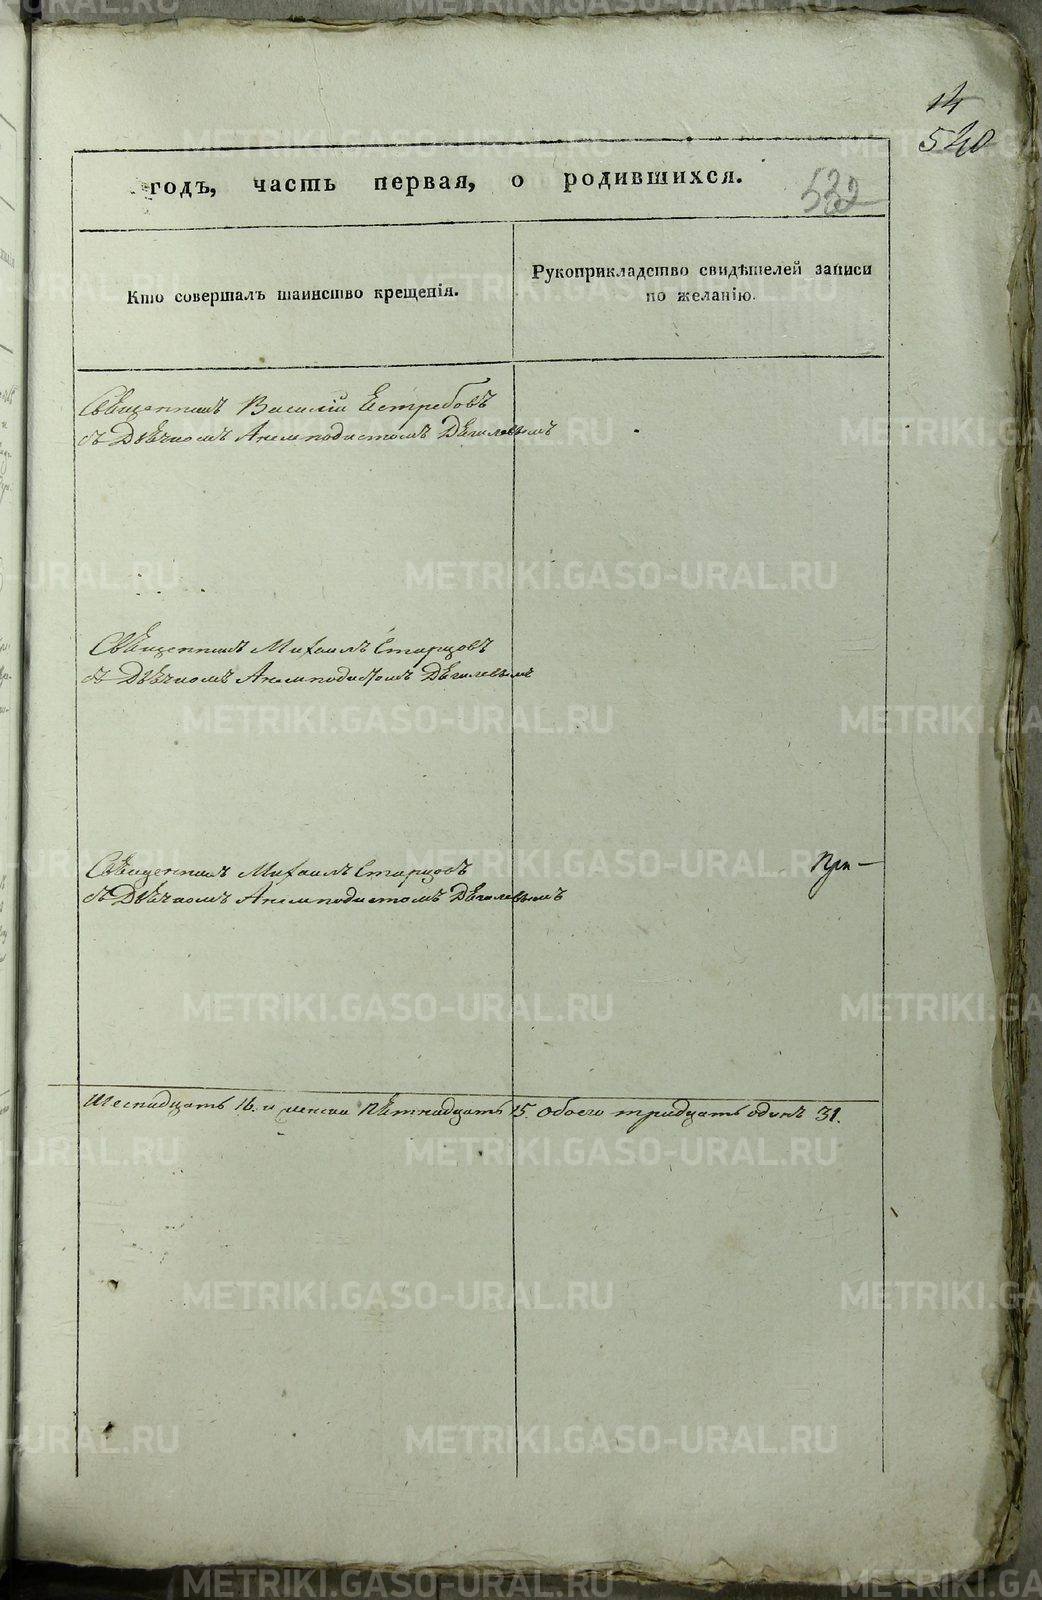 14
540
532
годъ, часть первая, о родившихся.
Кто совершалъ таинство крещенія.
Рукоприкладство свидѣтелей записи
по желанію.
Свѣщенникъ Василій Естребовъ
съ Дьѣчкомъ Анемподистомъ Дѣгилевымъ
Свѣщенникъ Михаилъ Старцовъ
съ Дьѣчкомъ Анемподистомъ Дѣгилевымъ
Свѣщенникъ Михаилъ Старцовъ
съ Дьѣчкомъ Анемподистомъ Дѣгилевымъ
При—
Шеснадцать 16. и женска пѣтнадцать 15. обоего тридцать одинъ 31.
METRIKI.GASO-URAL.RU